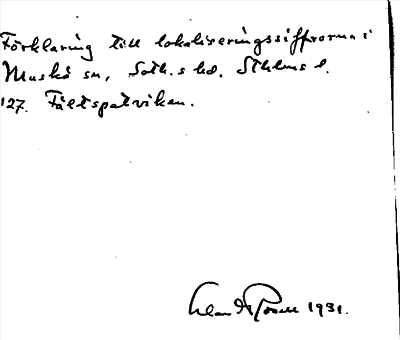 Förklaring till lokaliseringssiffrorna i
Muskö sn, Soth.s hd. Sthlms l.
127. Fältspatviken.
1931.